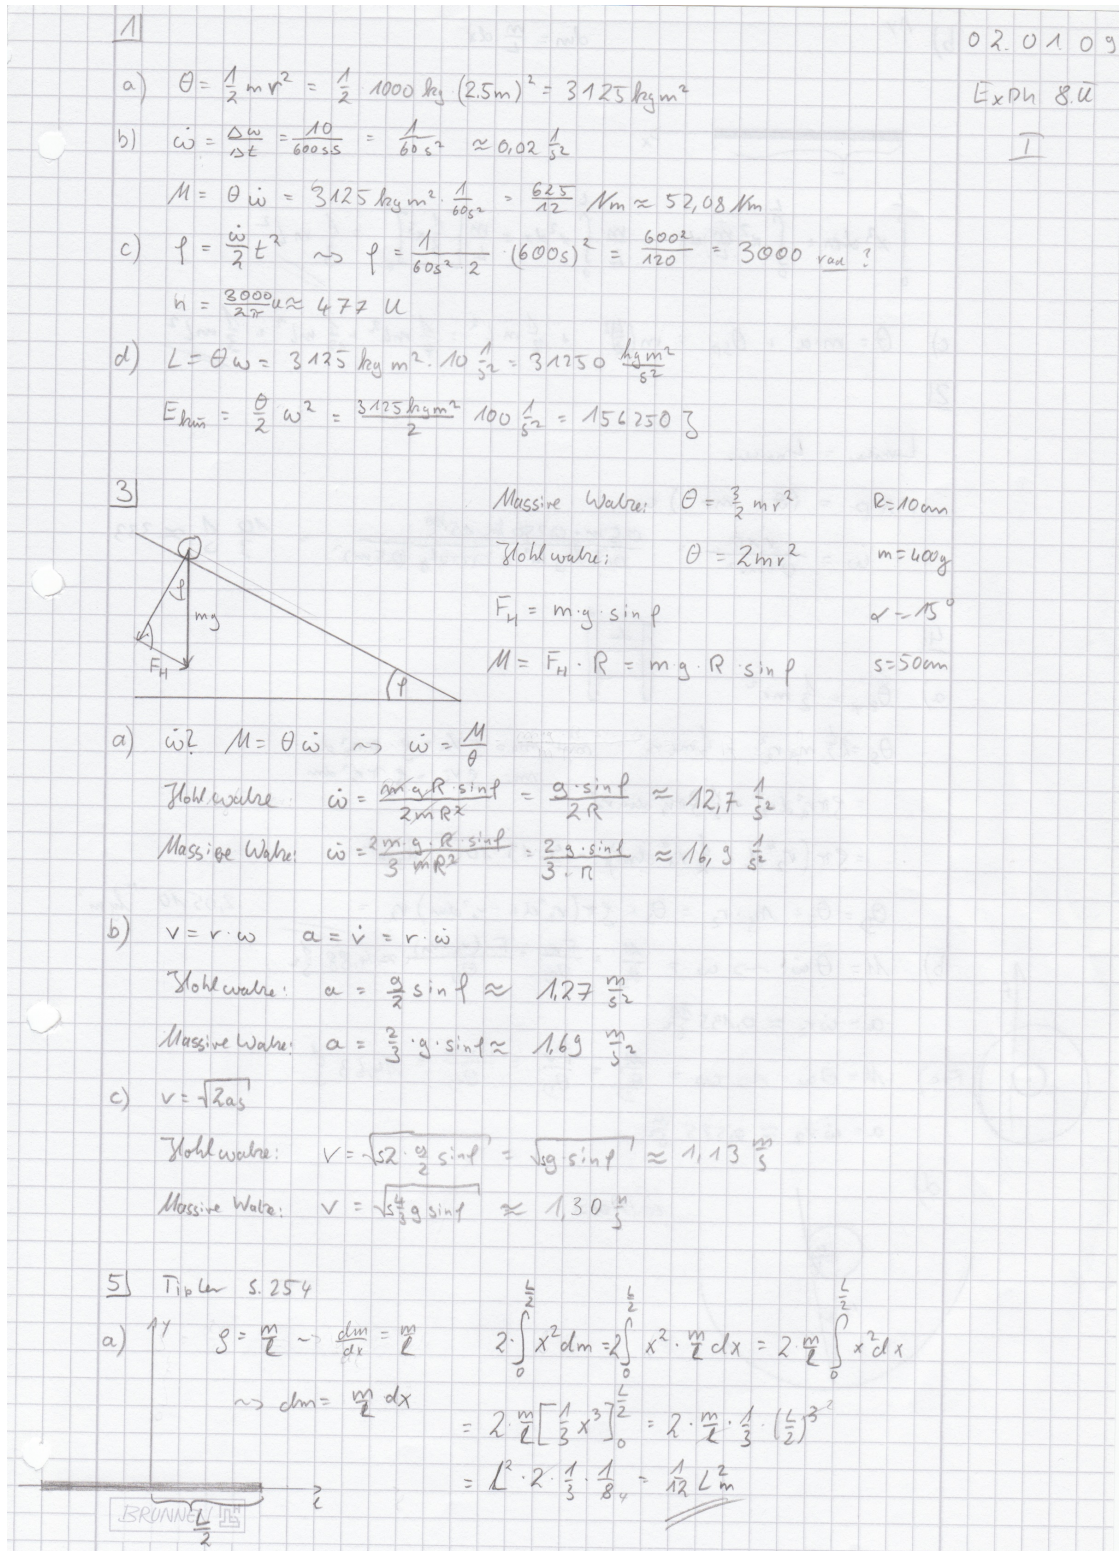 1
02.01.09
a) θ = 1/2 m r² = 1/2 1000 kg · (2.5m)² = 3125 kg m²
ExPh 8.Ü
b) ω̇ = Δω/Δt = 10/600ss = 1/60s² ≈ 0,02 1/s²
I
M = θ ω̇ = 3125 kg m² · 1/60s² = 625/12 Nm ≈ 52,08 Nm
c) φ = ω̇/2 t² ~> φ = 1/60s²·2 · (600s)² = 600²/120 = 3000 rad ?
n = 3000/2π u ≈ 477 U
d) L = θ ω = 3125 kg m² · 10 1/s² = 31250 kg m²/s²
E kin = θ/2 ω² = 3125 kg m²/2 100 1/s² = 156250 J
3
Massive Walze: θ = 3/2 m r² R=10cm
Hohlwalze: θ = 2 m r² m=400g
F_H = m·g·sin φ α = 15°
M = F_H · R = m·g·R·sin φ s=50cm
φ
mg
F_H
φ
a) ω̇? M = θ ω̇ ~> ω̇ = M/θ
Hohlwalze ω̇ = m g R·sin φ/2 m R² = g·sin φ/2R ≈ 12,7 1/s²
Massive Walze: ω̇ = 2 m·g·R·sin φ/3 m R² = 2 g·sin φ/3·R ≈ 16,9 1/s²
b) v = r·ω a = v̇ = r·ω̇
Hohlwalze: a = g/2 sin φ ≈ 1,27 m/s²
Massive Walze: a = 2/3 · g · sin φ ≈ 1,69 m/s²
c) v = √2as
Hohlwalze: v = √s2·g/2 sin φ = √sg sin φ ≈ 1,13 m/s
Massive Walze: v = √s 4/3 g sin φ ≈ 1,30 m/s
5 Tipler S.254
a) y ρ = m/L ~> dm/dx = m/L 2·∫₀^(L/2) x² dm = 2∫₀^(L/2) x² · m/L dx = 2·m/L ∫₀^(L/2) x² dx
~> dm = m/L dx = 2·m/L [1/3 x³]₀^(L/2) = 2·m/L·1/3·(L/2)³
= L²·2·1/3·1/8 = 1/12 L² m
L/2
BRUNNEN